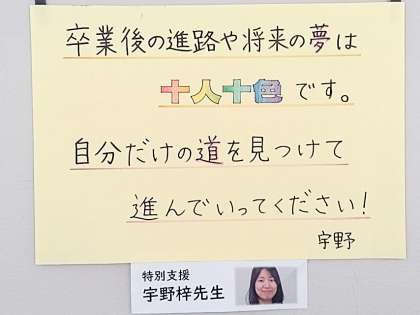 卒業後の進路や将来の夢は
十人十色です。
自分だけの道を見つけて
進んでいってください!
宇野
特別支援
宇野梓先生